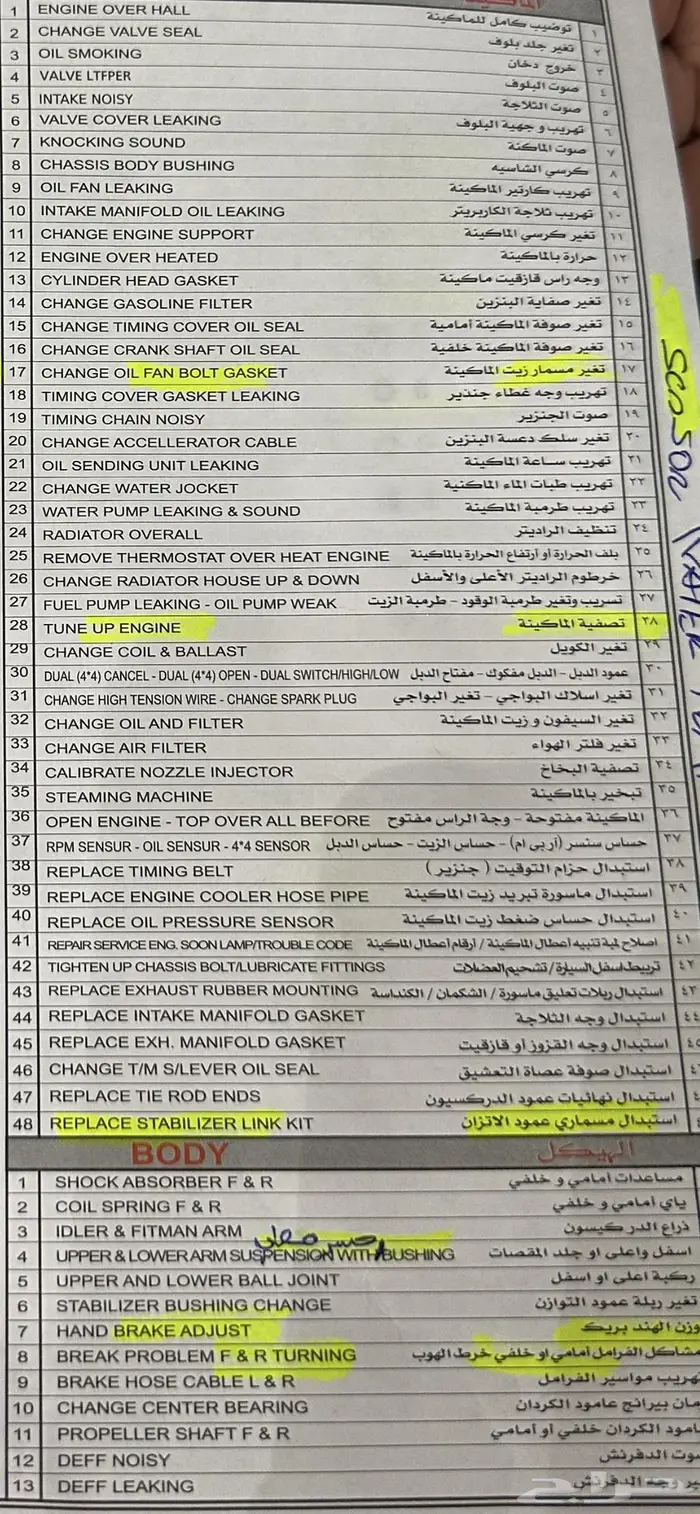 1 ENGINE OVER HALL توضيب كامل للماكينة ١
2 CHANGE VALVE SEAL تغير جلد بلوف ٢
3 OIL SMOKING خروج دخان ٣
4 VALVE LTFPER صوت البلوف ٤
5 INTAKE NOISY صوت الثلاجة ٥
6 VALVE COVER LEAKING تهريب وجهية البلوف ٦
7 KNOCKING SOUND صوت الماكنة ٧
8 CHASSIS BODY BUSHING كرسي الشاسيه ٨
9 OIL FAN LEAKING تهريب كارتير الماكينة ٩
10 INTAKE MANIFOLD OIL LEAKING تهريب ثلاجة الكاربريتر ١٠
11 CHANGE ENGINE SUPPORT تغير كرسي الماكينة ١١
12 ENGINE OVER HEATED حرارة بالماكينة ١٢
13 CYLINDER HEAD GASKET وجه راس قازقيت ماكينة ١٣
14 CHANGE GASOLINE FILTER تغير صفاية البنزين ١٤
15 CHANGE TIMING COVER OIL SEAL تغير صوفة الماكينة أمامية ١٥
16 CHANGE CRANK SHAFT OIL SEAL تغير صوفة الماكينة خلفية ١٦
17 CHANGE OIL FAN BOLT GASKET تغير مسمار زيت الماكينة ١٧
18 TIMING COVER GASKET LEAKING تهريب وجه غطاء جنذير ١٨
19 TIMING CHAIN NOISY صوت الجنزير ١٩
20 CHANGE ACCELLERATOR CABLE تغير سلك دعسة البنزين ٢٠
21 OIL SENDING UNIT LEAKING تهريب ساعة الماكينة ٢١
22 CHANGE WATER JOCKET تهريب طبات الماء الماكنية ٢٢
23 WATER PUMP LEAKING & SOUND تهريب طرمبة الماكينة ٢٣
24 RADIATOR OVERALL تنظيف الراديتر ٢٤
25 REMOVE THERMOSTAT OVER HEAT ENGINE بلف الحرارة أو أرتفاع الحرارة بالماكينة ٢٥
26 CHANGE RADIATOR HOUSE UP & DOWN خرطوم الراديتر الأعلى والأسفل ٢٦
27 FUEL PUMP LEAKING - OIL PUMP WEAK تسريب وتغير طرمبة الوقود - طرمبة الزيت ٢٧
28 TUNE UP ENGINE تصفية الماكينة ٢٨
29 CHANGE COIL & BALLAST تغير الكويل ٢٩
30 DUAL (4*4) CANCEL - DUAL (4*4) OPEN - DUAL SWITCH/HIGH/LOW عمود الدبل - الدبل مفكوك - مفتاح الدبل ٣٠
31 CHANGE HIGH TENSION WIRE - CHANGE SPARK PLUG تغير اسلاك البواجي - تغير البواجي ٣١
32 CHANGE OIL AND FILTER تغير السيفون و زيت الماكينة ٣٢
33 CHANGE AIR FILTER تغير فلتر الهواء ٣٣
34 CALIBRATE NOZZLE INJECTOR تصفية البخاخ ٣٤
35 STEAMING MACHINE تبخير بالماكينة ٣٥
36 OPEN ENGINE - TOP OVER ALL BEFORE الماكينة مفتوحة - وجة الراس مفتوح ٣٦
37 RPM SENSUR - OIL SENSUR - 4*4 SENSOR حساس سنسر (أر بي ام) - حساس الزيت - حساس الدبل ٣٧
38 REPLACE TIMING BELT استبدال حزام التوقيت ( جنزير ) ٣٨
39 REPLACE ENGINE COOLER HOSE PIPE استبدال ماسورة تبريد زيت الماكينة ٣٩
40 REPLACE OIL PRESSURE SENSOR استبدال حساس ضغط زيت الماكينة ٤٠
41 REPAIR SERVICE ENG. SOON LAMP/TROUBLE CODE اصلاح لمبة تنبيه أعطال الماكينة / أرقام أعطال الماكينة ٤١
42 TIGHTEN UP CHASSIS BOLT/LUBRICATE FITTINGS تربيط اسفل السيارة / تشحيم العضلات ٤٢
43 REPLACE EXHAUST RUBBER MOUNTING استبدال ربلات تعليق ماسورة / الشكمان / الكنداسة ٤٣
44 REPLACE INTAKE MANIFOLD GASKET استبدال وجه الثلاجة ٤٤
45 REPLACE EXH. MANIFOLD GASKET استبدال وجه القزوز او قازقيت ٤٥
46 CHANGE T/M S/LEVER OIL SEAL استبدال صوفة عصاة التعشيق
47 REPLACE TIE ROD ENDS استبدال نهائيات عمود الدركسيون
48 REPLACE STABILIZER LINK KIT استبدال مسماري عمود الاتزان
BODY الهيكل
1 SHOCK ABSORBER F & R مساعدات أمامي و خلفي
2 COIL SPRING F & R ياي أمامي و خلفي
3 IDLER & FITMAN ARM ذراع الدركيسون
4 UPPER & LOWER ARM SUSPENSION WITH BUSHING اسفل واعلى او جلد المقصات
5 UPPER AND LOWER BALL JOINT ركبة اعلى او اسفل
6 STABILIZER BUSHING CHANGE تغير ربلة عمود التوازن
7 HAND BRAKE ADJUST وزن الهند بريك
8 BREAK PROBLEM F & R TURNING مشاكل الفرامل أمامي او خلفي خرط الهوب
9 BRAKE HOSE CABLE L & R تهريب مواسير الفرامل
10 CHANGE CENTER BEARING بيرانج عامود الكردان
11 PROPELLER SHAFT F & R الكردان خلفي أو أمامي
12 DEFF NOISY صوت الدفرنش
13 DEFF LEAKING وجه الدفرنش
حراج